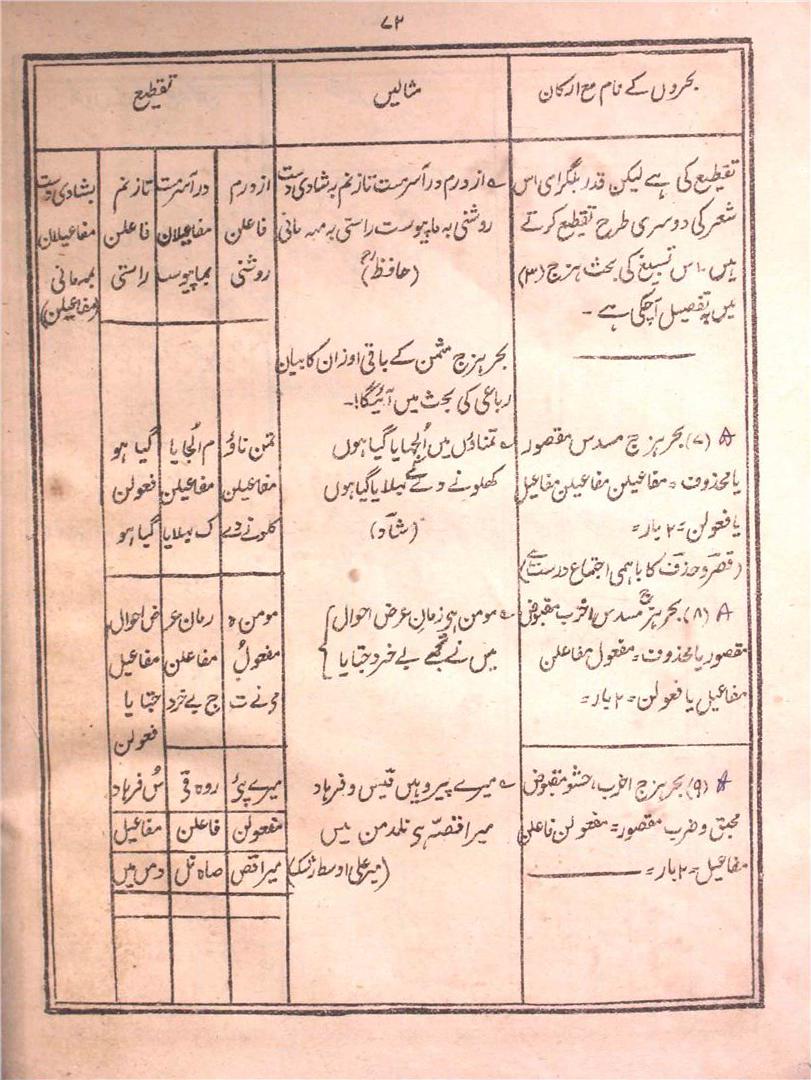 ۷۲
بحروں کے نام مع ارکان
مثالیں
تقطیع
تقطیع کی ہے لیکن قدر بلگرامی اس
شعر کی دوسری طرح تقطیع کرتے
ہیں۔ اس تسبیغ کی بحث ہزج (۳)
میں بہ تفصیل آچکی ہے۔
از درم در آسرمست تا زنم بہ شادی دست
روشنی بہ ما پیوست راستی بہ مہمانی
(حافظؒ)
از درم در آسرمست تا زنم بشادی دست
فاعلن مفاعیلان فاعلن مفاعیلان
روشنی بما پیوست راستی بمہمانی
(مفاعیلن)
بحر ہزج مثمن کے باقی اوزان کا بیان
رباعی کی بحث میں آئیگا!۔
(۷) بحر ہزج مسدس مقصور
یا محذوف = مفاعیلن مفاعیلن مفاعیل
یا فعولن = ۲ بار =
(قصر و حذف کا باہمی اجتماع درست ہے)
تمناؤں میں اُلجھایا گیا ہوں
کھلونے دے کے بہلایا گیا ہوں
(شاد)
تمن ناؤ م الجایا گیا ہو
مفاعیلن مفاعیلن فعولن
کلونے دے ک بہلایا گیا ہو
(۸) بحر ہزج مسدس اخرب مقبوض
مقصور یا محذوف = مفعول مفاعلن
مفاعیل یا فعولن = ۲ بار =
مومن ہی زمانِ عرض احوال
میں نے تجھے بے خرد جتایا
مومن ہ زمان عر ض احوال
مفعولُ مفاعلن مفاعیل
مے نے ت ج بے خرد جتا یا
فعولن
(۹) بحر ہزج اخرب، حشو مقبوض
محبق و ضرب مقصور = مفعولن فاعلن
مفاعیل = ۲ بار =
میرے پیرو ہیں قیس و فرہاد
میرا قصہ ہی نلدمن میں
(میر علی اوسط رشک)
میرے پے روہ قی س فرہاد
مفعولن فاعلن مفاعیل
میرا قص صاہ نل دمن میں